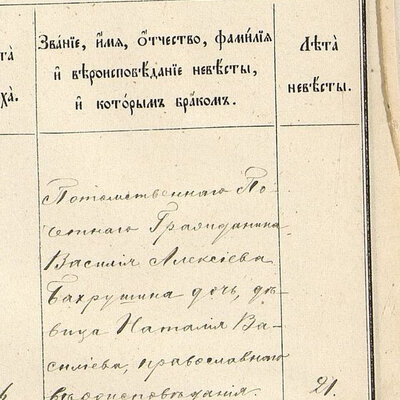 та
ха.
Званіе, имя, отчество, фамилія
и вѣроисповѣданіе невѣсты,
и которымъ бракомъ.
Лѣта
невѣсты.
Потомственнаго По-
четнаго Гражданина
Василія Алексіева
Бахрушина дочь, дѣ-
вица Наталія Ва-
силіева, православнаго
вѣроисповѣданія.
21.